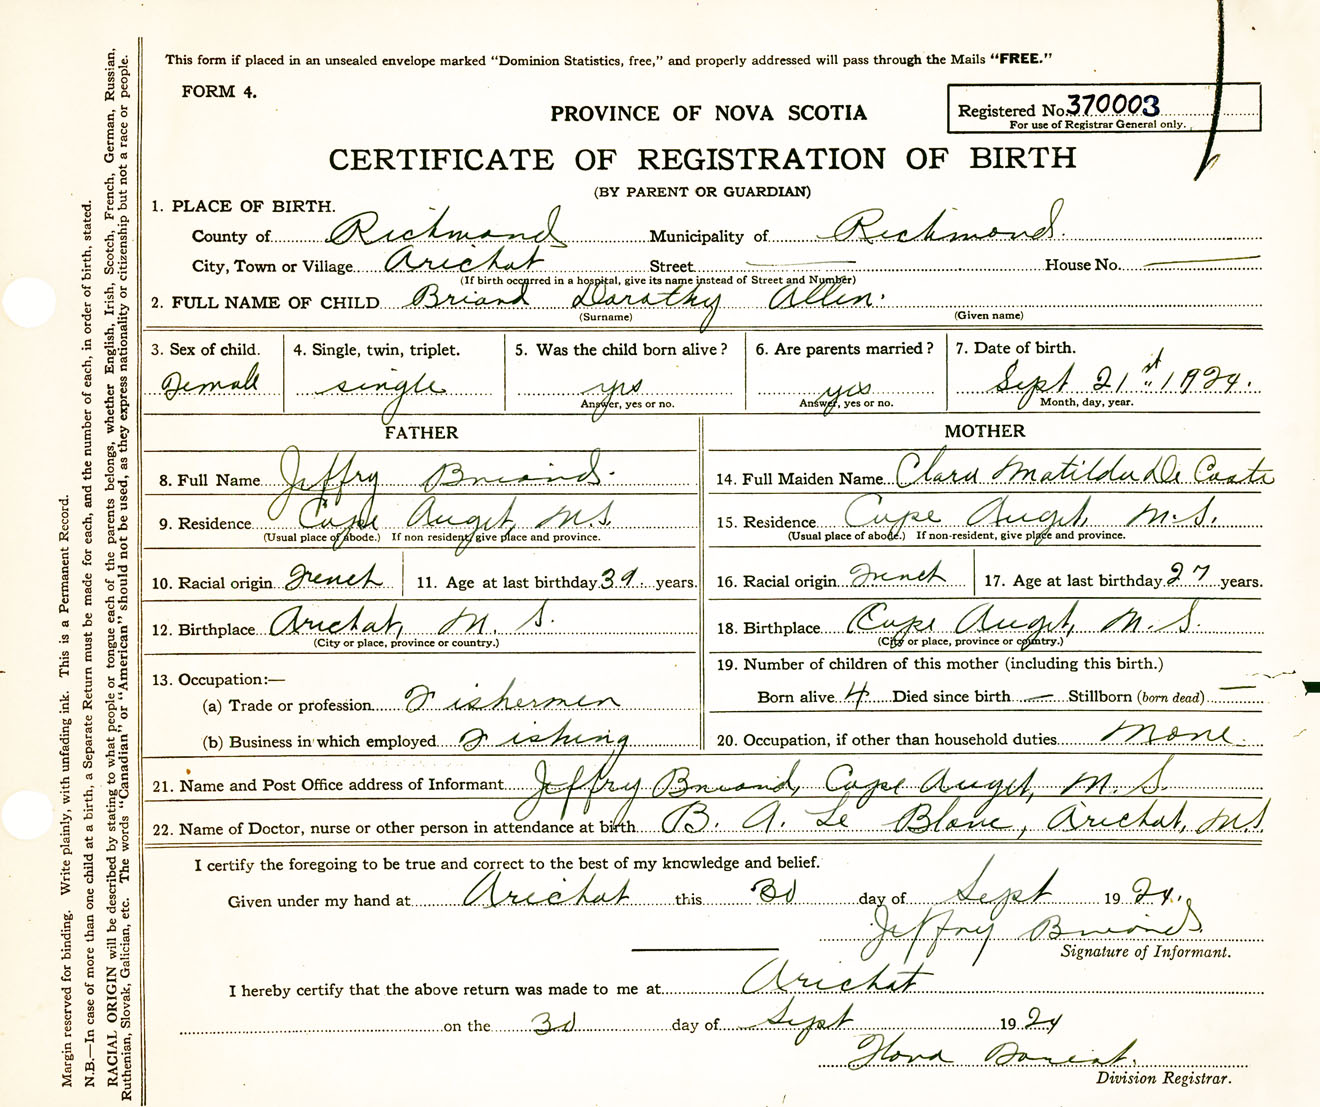 This form if placed in an unsealed envelope marked "Dominion Statistics, free," and properly addressed will pass through the Mails "FREE."
FORM 4.
PROVINCE OF NOVA SCOTIA
Registered No. 370003
For use of Registrar General only.
CERTIFICATE OF REGISTRATION OF BIRTH
(BY PARENT OR GUARDIAN)
1. PLACE OF BIRTH.
County of Richmond Municipality of Richmond.
City, Town or Village Arichat Street — House No. —
(If birth occurred in a hospital, give its name instead of Street and Number)
2. FULL NAME OF CHILD Briand Dorathy Allen.
(Surname) (Given name)
3. Sex of child. 4. Single, twin, triplet. 5. Was the child born alive? 6. Are parents married? 7. Date of birth.
Female single yes yes Sept 21st 1924.
Answer, yes or no. Answer, yes or no. Month, day, year.
FATHER MOTHER
8. Full Name Jeffry Briand. 14. Full Maiden Name Clara Matilda De Coste
9. Residence Cape Auget, N.S. 15. Residence Cape Auget, N.S.
(Usual place of abode.) If non resident, give place and province. (Usual place of abode.) If non-resident, give place and province.
10. Racial origin French 11. Age at last birthday 39. years. 16. Racial origin French 17. Age at last birthday 27 years.
12. Birthplace Arichat, N. S. 18. Birthplace Cape Auget, N. S.
(City or place, province or country.) (City or place, province or country.)
13. Occupation:— 19. Number of children of this mother (including this birth.)
(a) Trade or profession Fishermen Born alive 4 Died since birth — Stillborn (born dead) —
(b) Business in which employed Fishing 20. Occupation, if other than household duties None.
21. Name and Post Office address of Informant Jeffry Briand, Cape Auget, N. S.
22. Name of Doctor, nurse or other person in attendance at birth B. A. Le Blanc, Arichat, N.S.
I certify the foregoing to be true and correct to the best of my knowledge and belief.
Given under my hand at Arichat this 30 day of Sept 1924.
Jeffry Briand
Signature of Informant.
I hereby certify that the above return was made to me at Arichat
on the 30 day of Sept 1924
Division Registrar.
Margin reserved for binding. Write plainly, with unfading ink. This is a Permanent Record.
N.B.—In case of more than one child at a birth, a Separate Return must be made for each, and the number of each, in order of birth, stated.
RACIAL ORIGIN will be described by stating to what people or tongue each of the parents belongs, whether English, Irish, Scotch, French, German, Russian,
Ruthenian, Slovak, Galician, etc. The words "Canadian" or "American" should not be used, as they express nationality or citizenship but not a race or people.